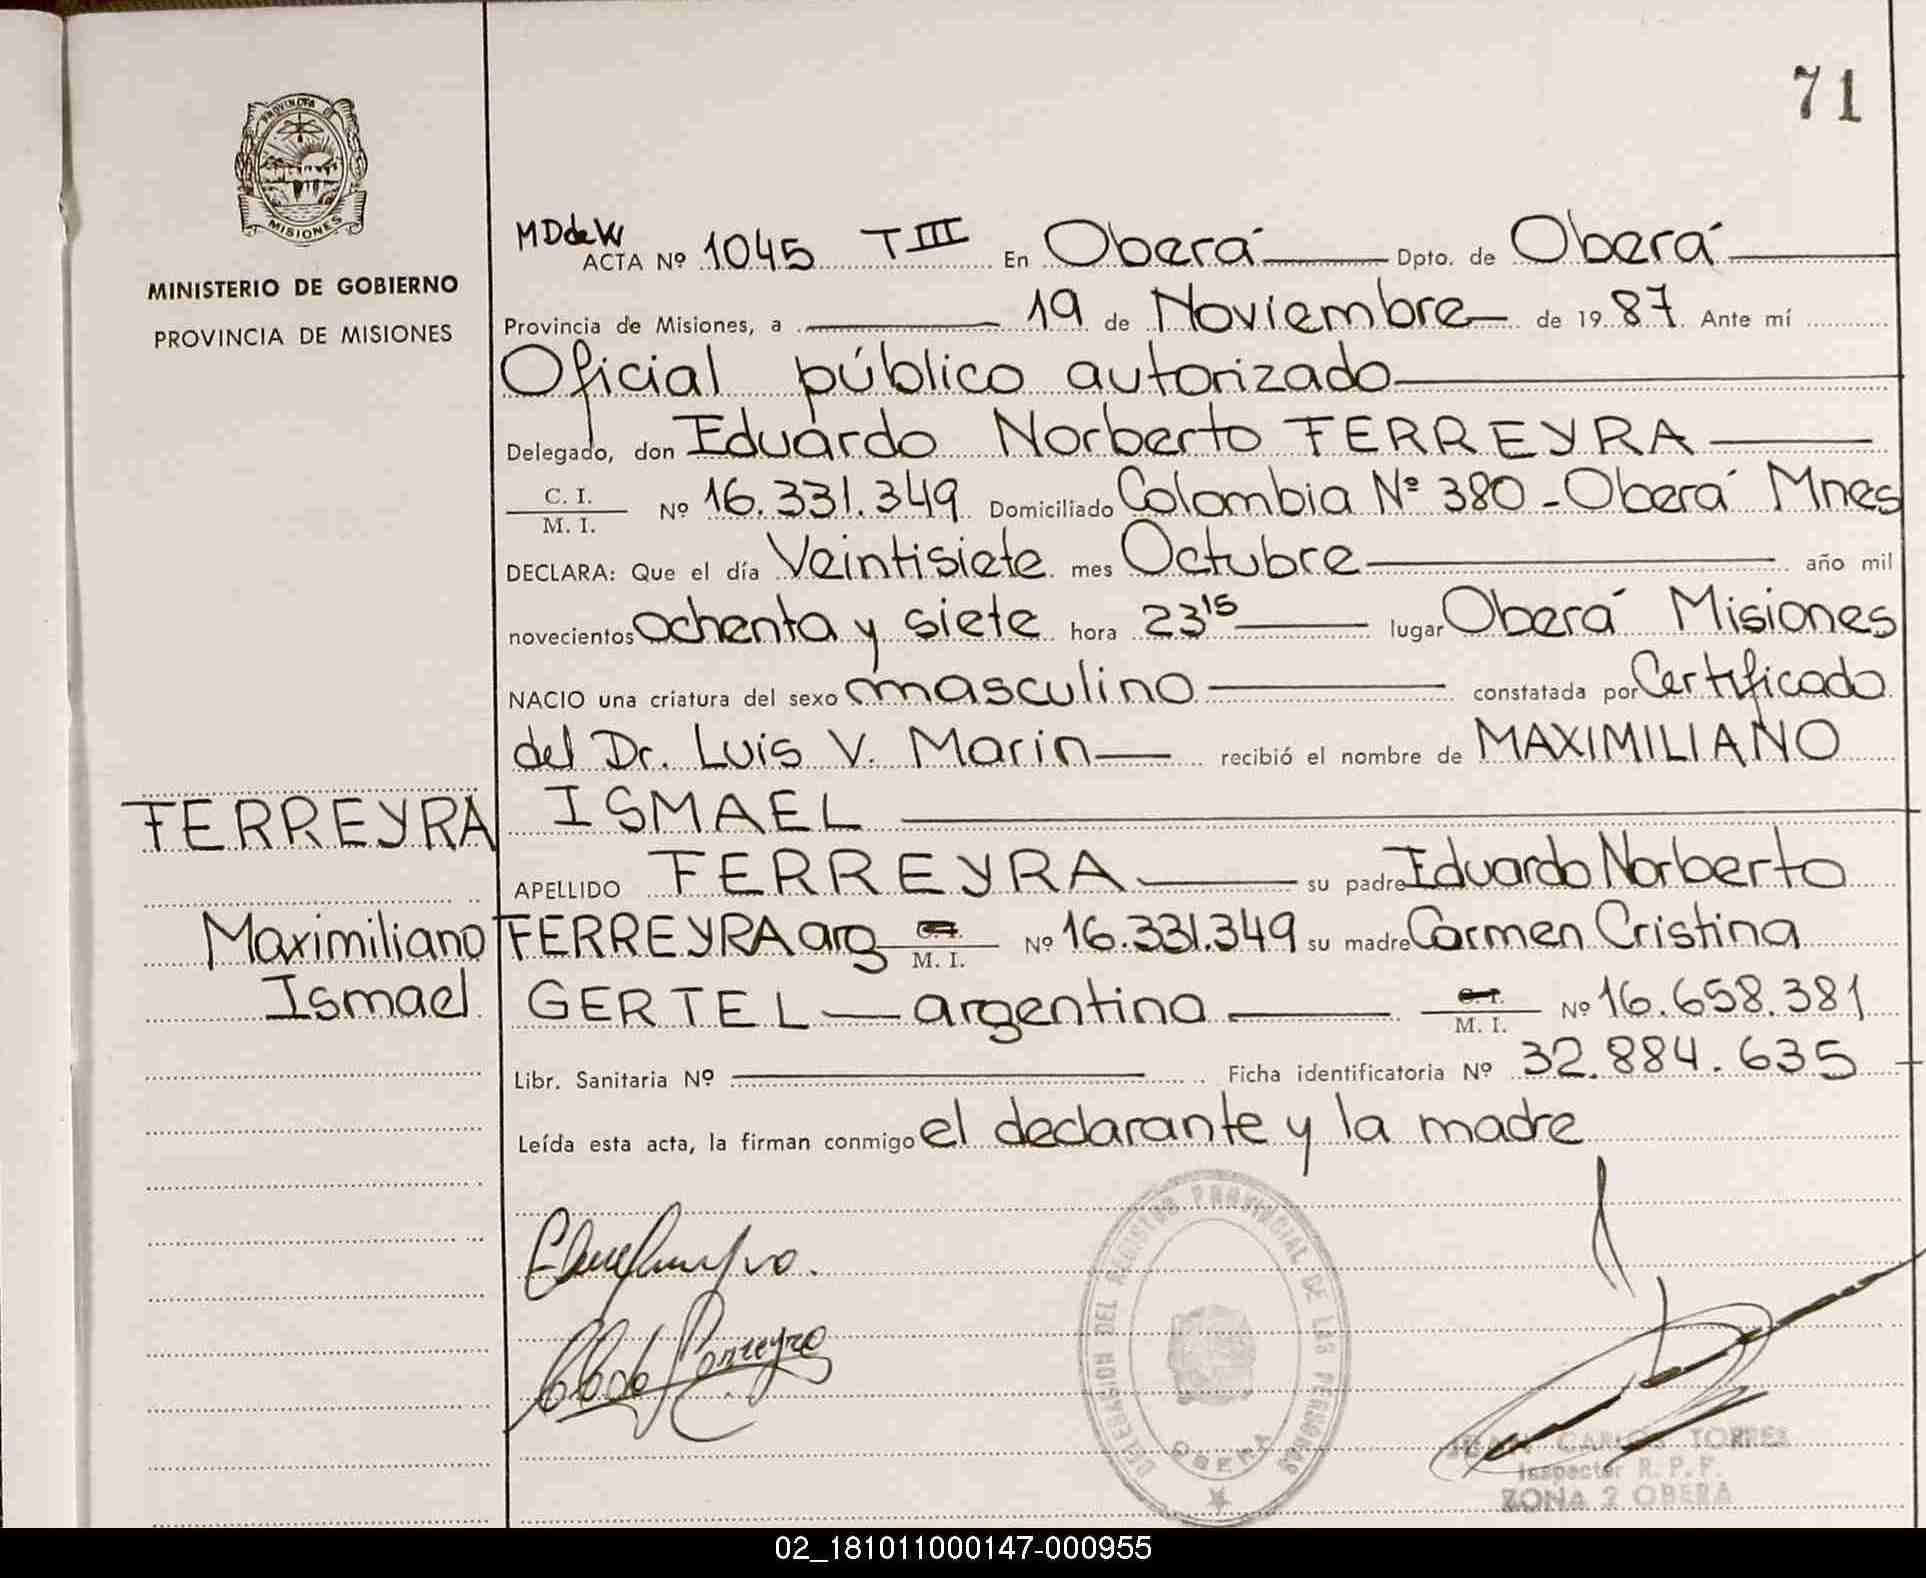 71
PROVINCIA DE
MISIONES
MINISTERIO DE GOBIERNO
PROVINCIA DE MISIONES
MD de W
ACTA Nº 1045 T III En Oberá Dpto. de Oberá
Provincia de Misiones, a 19 de Noviembre de 1987 Ante mí
Oficial público autorizado
Delegado, don Eduardo Norberto FERREYRA
C. I.
M. I.
Nº 16.331.349 Domiciliado Colombia Nº 380 - Oberá Mnes
DECLARA: Que el día Veintisiete mes Octubre año mil
novecientos ochenta y siete hora 23 15 lugar Oberá Misiones
NACIO una criatura del sexo masculino constatada por Certificado
del Dr. Luis V. Marin recibió el nombre de MAXIMILIANO
ISMAEL
FERREYRA
Maximiliano
Ismael
APELLIDO FERREYRA su padre Eduardo Norberto
FERREYRA arg C. I. M. I. Nº 16.331.349 su madre Carmen Cristina
GERTEL argentina C. I. M. I. Nº 16.658.381
Libr. Sanitaria Nº Ficha identificatoria Nº 32.884.635
Leída esta acta, la firman conmigo el declarante y la madre
DELEGACION DEL REGISTRO PROVINCIAL DE LAS PERSONAS
OBERA
JUAN CARLOS TORRES
Inspector R. P. P.
ZONA 2 OBERA
02_181011000147-000955